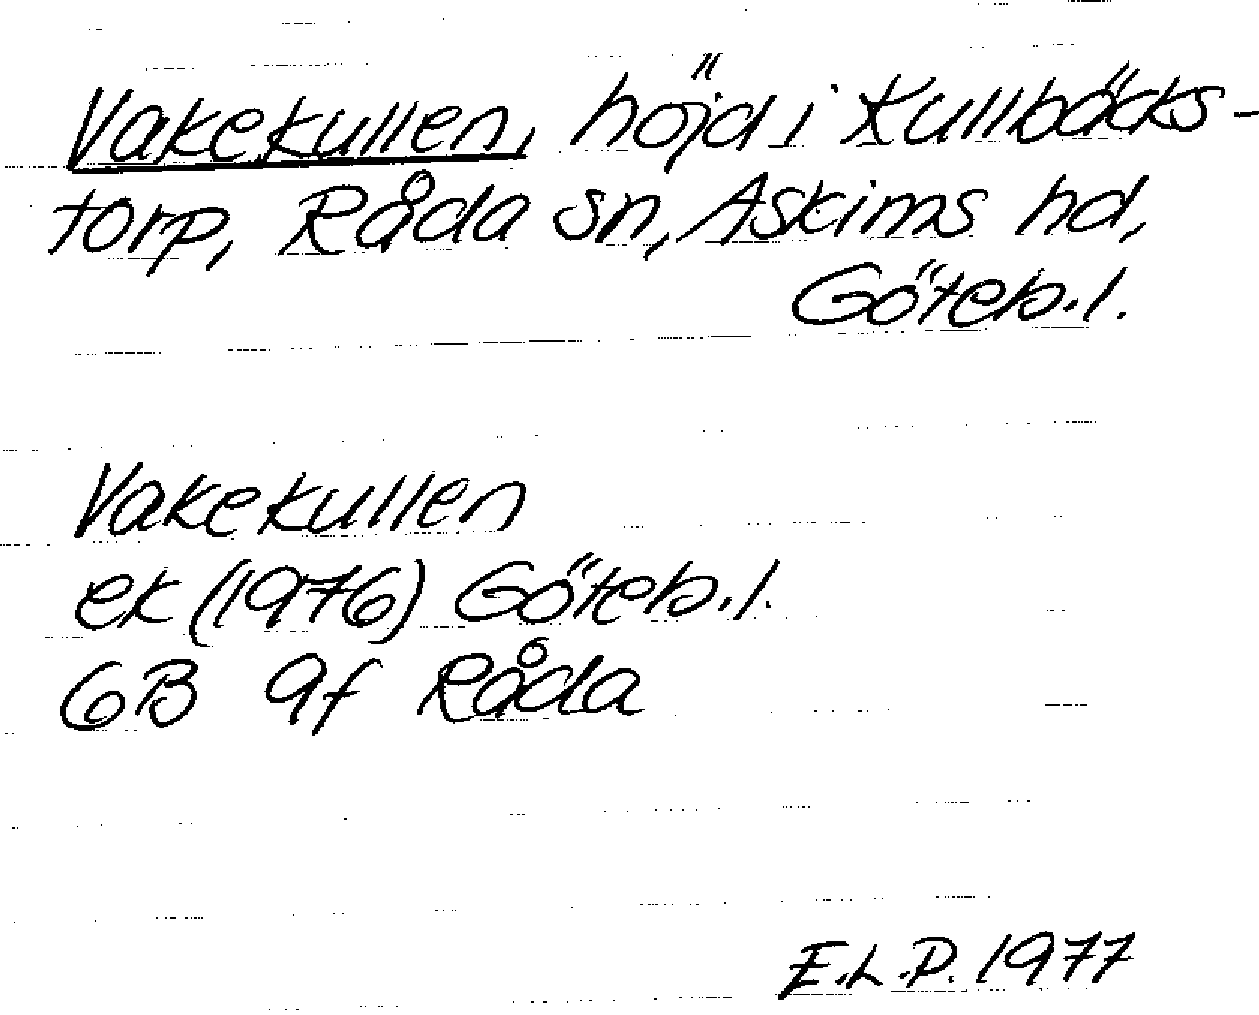 Vakekullen, höjd i Kullbäcks-
torp, Råda sn, Askims hd,
Göteb. l.
Vakekullen
ek (1976) Göteb. l.
6B 9f Råda
E.L.P. 1977